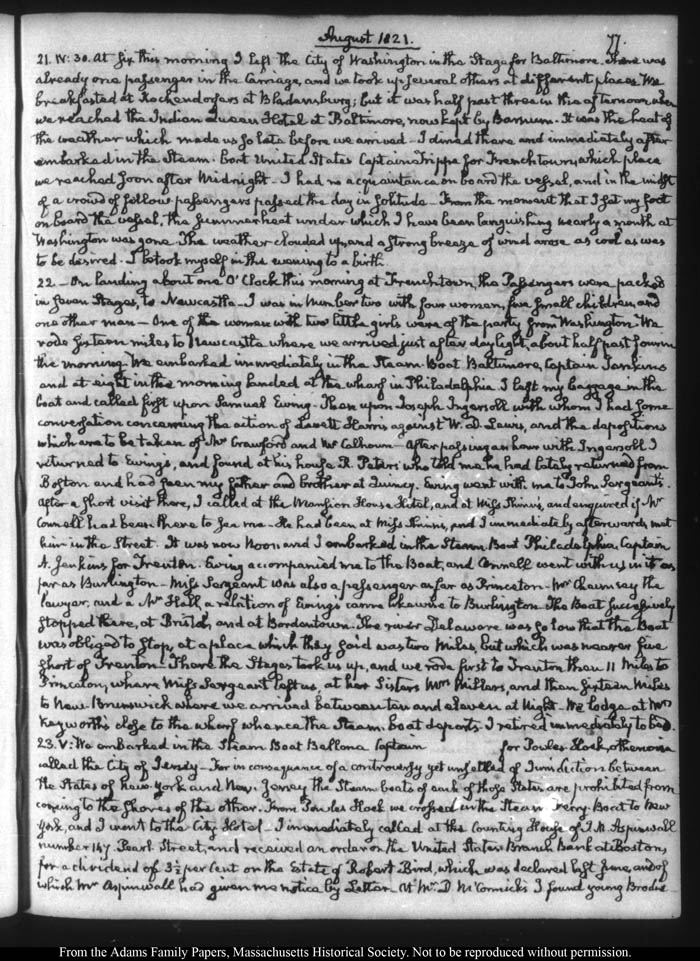 August 1821.
77.
21. IV:30. At six this morning I left the City of Washington in the Stage for Baltimore. There was
already one passenger in the Carriage, and we took up several others at different places. We
breakfasted at Rochendorfers at Bladensburg; but it was half past three in the afternoon when
we reached the Indian Queen Hotel at Baltimore, now kept by Barnum. It was the heat of
the weather which made us so late before we arrived — I dined there and immediately after
embarked in the Steam-Boat United States Captain Trippe for Frenchtown, which place
we reached soon after Midnight — I had no acquaintance on board the vessel, and in the midst
of a crowd of fellow passengers passed the day in solitude — From the moment that I set my foot
on board the vessel, the summer heat under which I have been languishing nearly a month at
Washington was gone. The weather clouded up and a strong breeze of wind arose as cool as was
to be desired. I betook myself in the evening to a birth.
22 — On landing about one O'Clock this morning at Frenchtown, the Passengers were packed
in seven Stages, to Newcastle — I was in Number two with four women, five small children, and
one other man — One of the women with two little girls were of the party from Washington. We
rode sixteen miles to Newcastle where we arrived just after day light, about half past four in
the morning. We embarked immediately in the Steam-Boat Baltimore, Captain Jenkins
and at eight in the morning landed at the wharf in Philadelphia. I left my baggage in the
boat and called first upon Samuel Ewing — Then upon Joseph Ingersoll with whom I had some
conversation concerning the action of Levett Harris against W. D. Lewis, and the depositions
which are to be taken of Mr Crawford and Mr Calhoun — After passing an hour with Ingersoll I
returned to Ewing's, and found at his house R. Peters who told me he had lately returned from
Boston and had seen my father and brother at Quincy. Ewing went with me to John Sergeant's.
After a short visit there, I called at the Mansion House Hotel, and at Miss Thinus, and enquired if Mr
Connell had been there to see me — He had been at Miss Thinus, and I immediately afterwards met
him in the Street. It was now Noon and I embarked in the Steam Boat Philadelphia Captain
A. Jenkins for Trenton. Ewing accompanied me to the Boat, and Connell went with us in it as
far as Burlington — Miss Sergeant was also a passenger as far as Princeton — Mr Chauncey the
lawyer, and a Mr Hall, a relation of Ewing's came likewise to Burlington. The Boat successively
stopped there, at Bristol, and at Bordentown. The river Delaware was so low that the Boat
was obliged to stop, at a place which they said was two Miles, but which was nearer five
short of Trenton. There the Stages took us up, and we rode first to Trenton then 11 Miles to
Princeton, where Miss Sergeant left us, at her Sisters Mrs Millers, and then sixteen Miles
to New Brunswick where we arrived between ten and eleven at Night. We lodge at Mrs
Keyworths close to the wharf whence the Steam boat departs. I retired immediately to bed.
23. V: We embarked in the Steam Boat Bellona Captain for Powles Hook, otherwise
called the City of Jersey — For in consequence of a controversy yet unsettled of Jurisdiction between
the States of New-York and New-Jersey the Steam boats of each of those States are prohibited from
coming to the shores of the other. From Powles Hook we crossed in the Steam Ferry Boat to New
York, and I went to the City Hotel — I immediately called at the Counting House of J. M. Aspinwall
number 147 Pearl Street, and received an order on the United States Branch Bank at Boston,
for a dividend of 3½ per Cent on the Estate of Robert Bird, which was declared last June, and of
which Mr Aspinwall had given me notice by Letter. At Mr D. McCormick's I found young Brodie
From the Adams Family Papers, Massachusetts Historical Society. Not to be reproduced without permission.